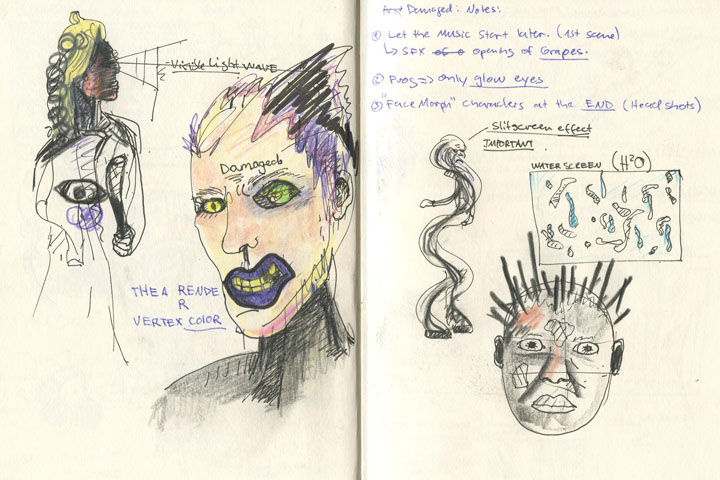 Visible Light WAVE
Damaged
THEA RENDE
R
VERTEX COLOR
Art Damaged: Notes:
① Let the Music Start later. (1st scene)
↳ SFX of a opening of Grapes.
② Frog => only glow eyes
③ "Face Morph" Characters at the END (Head Shots)
Slitscreen effect
IMPORTANT.
WATER SCREEN (H²O)